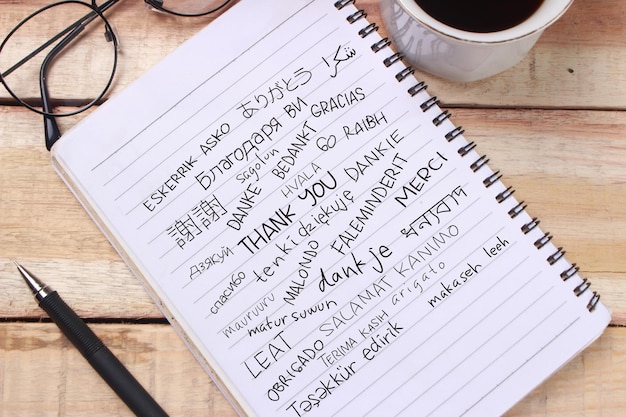 ありがとう شكرا
ESKERRIK ASKO
Благодаря ВИ GRACIAS
Sagolun BEDANKT GO RAIBH
謝謝 DANKE HVALA
THANK YOU DANKIE
Дзякуй tenki dziękuję FALEMINDERIT MERCI
спасибо MALONDO dank je ধন্যবাদ
mauruuru
matur suwun SALAMAT KANIMO
LEAT TERIMA KASIH arigato makaseh leeh
OBRIGADO
Təşəkkür edirik